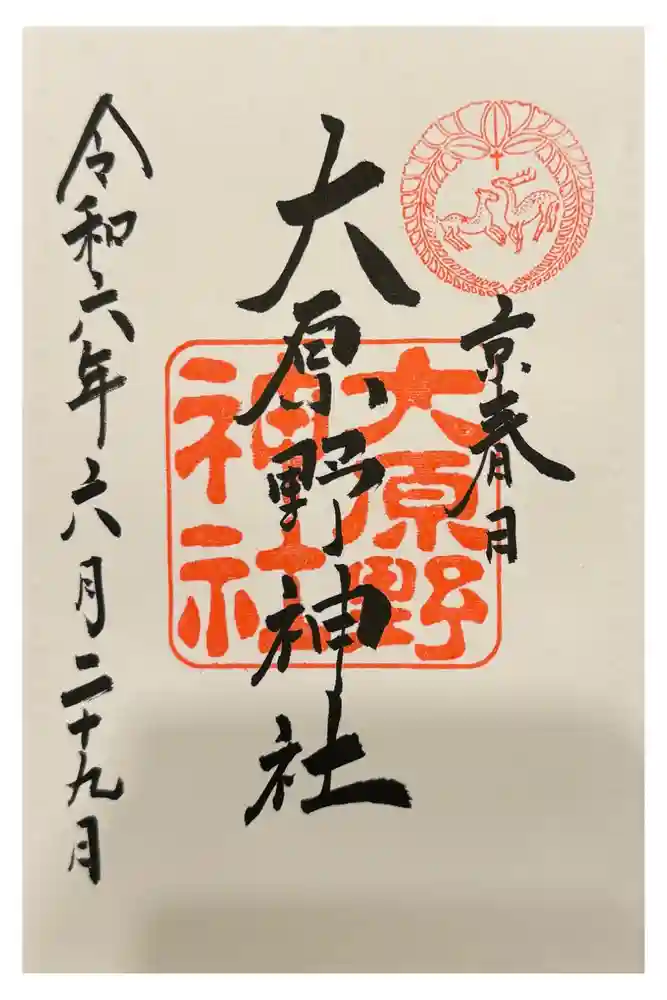 京春日
大原野神社
大原野
神社
令和六年六月二十九月